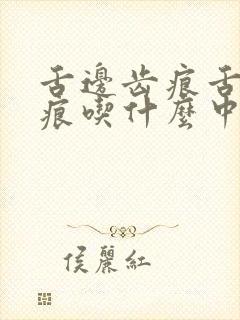 舌邊齒痕舌
痕喫什麼中
侯麗紅